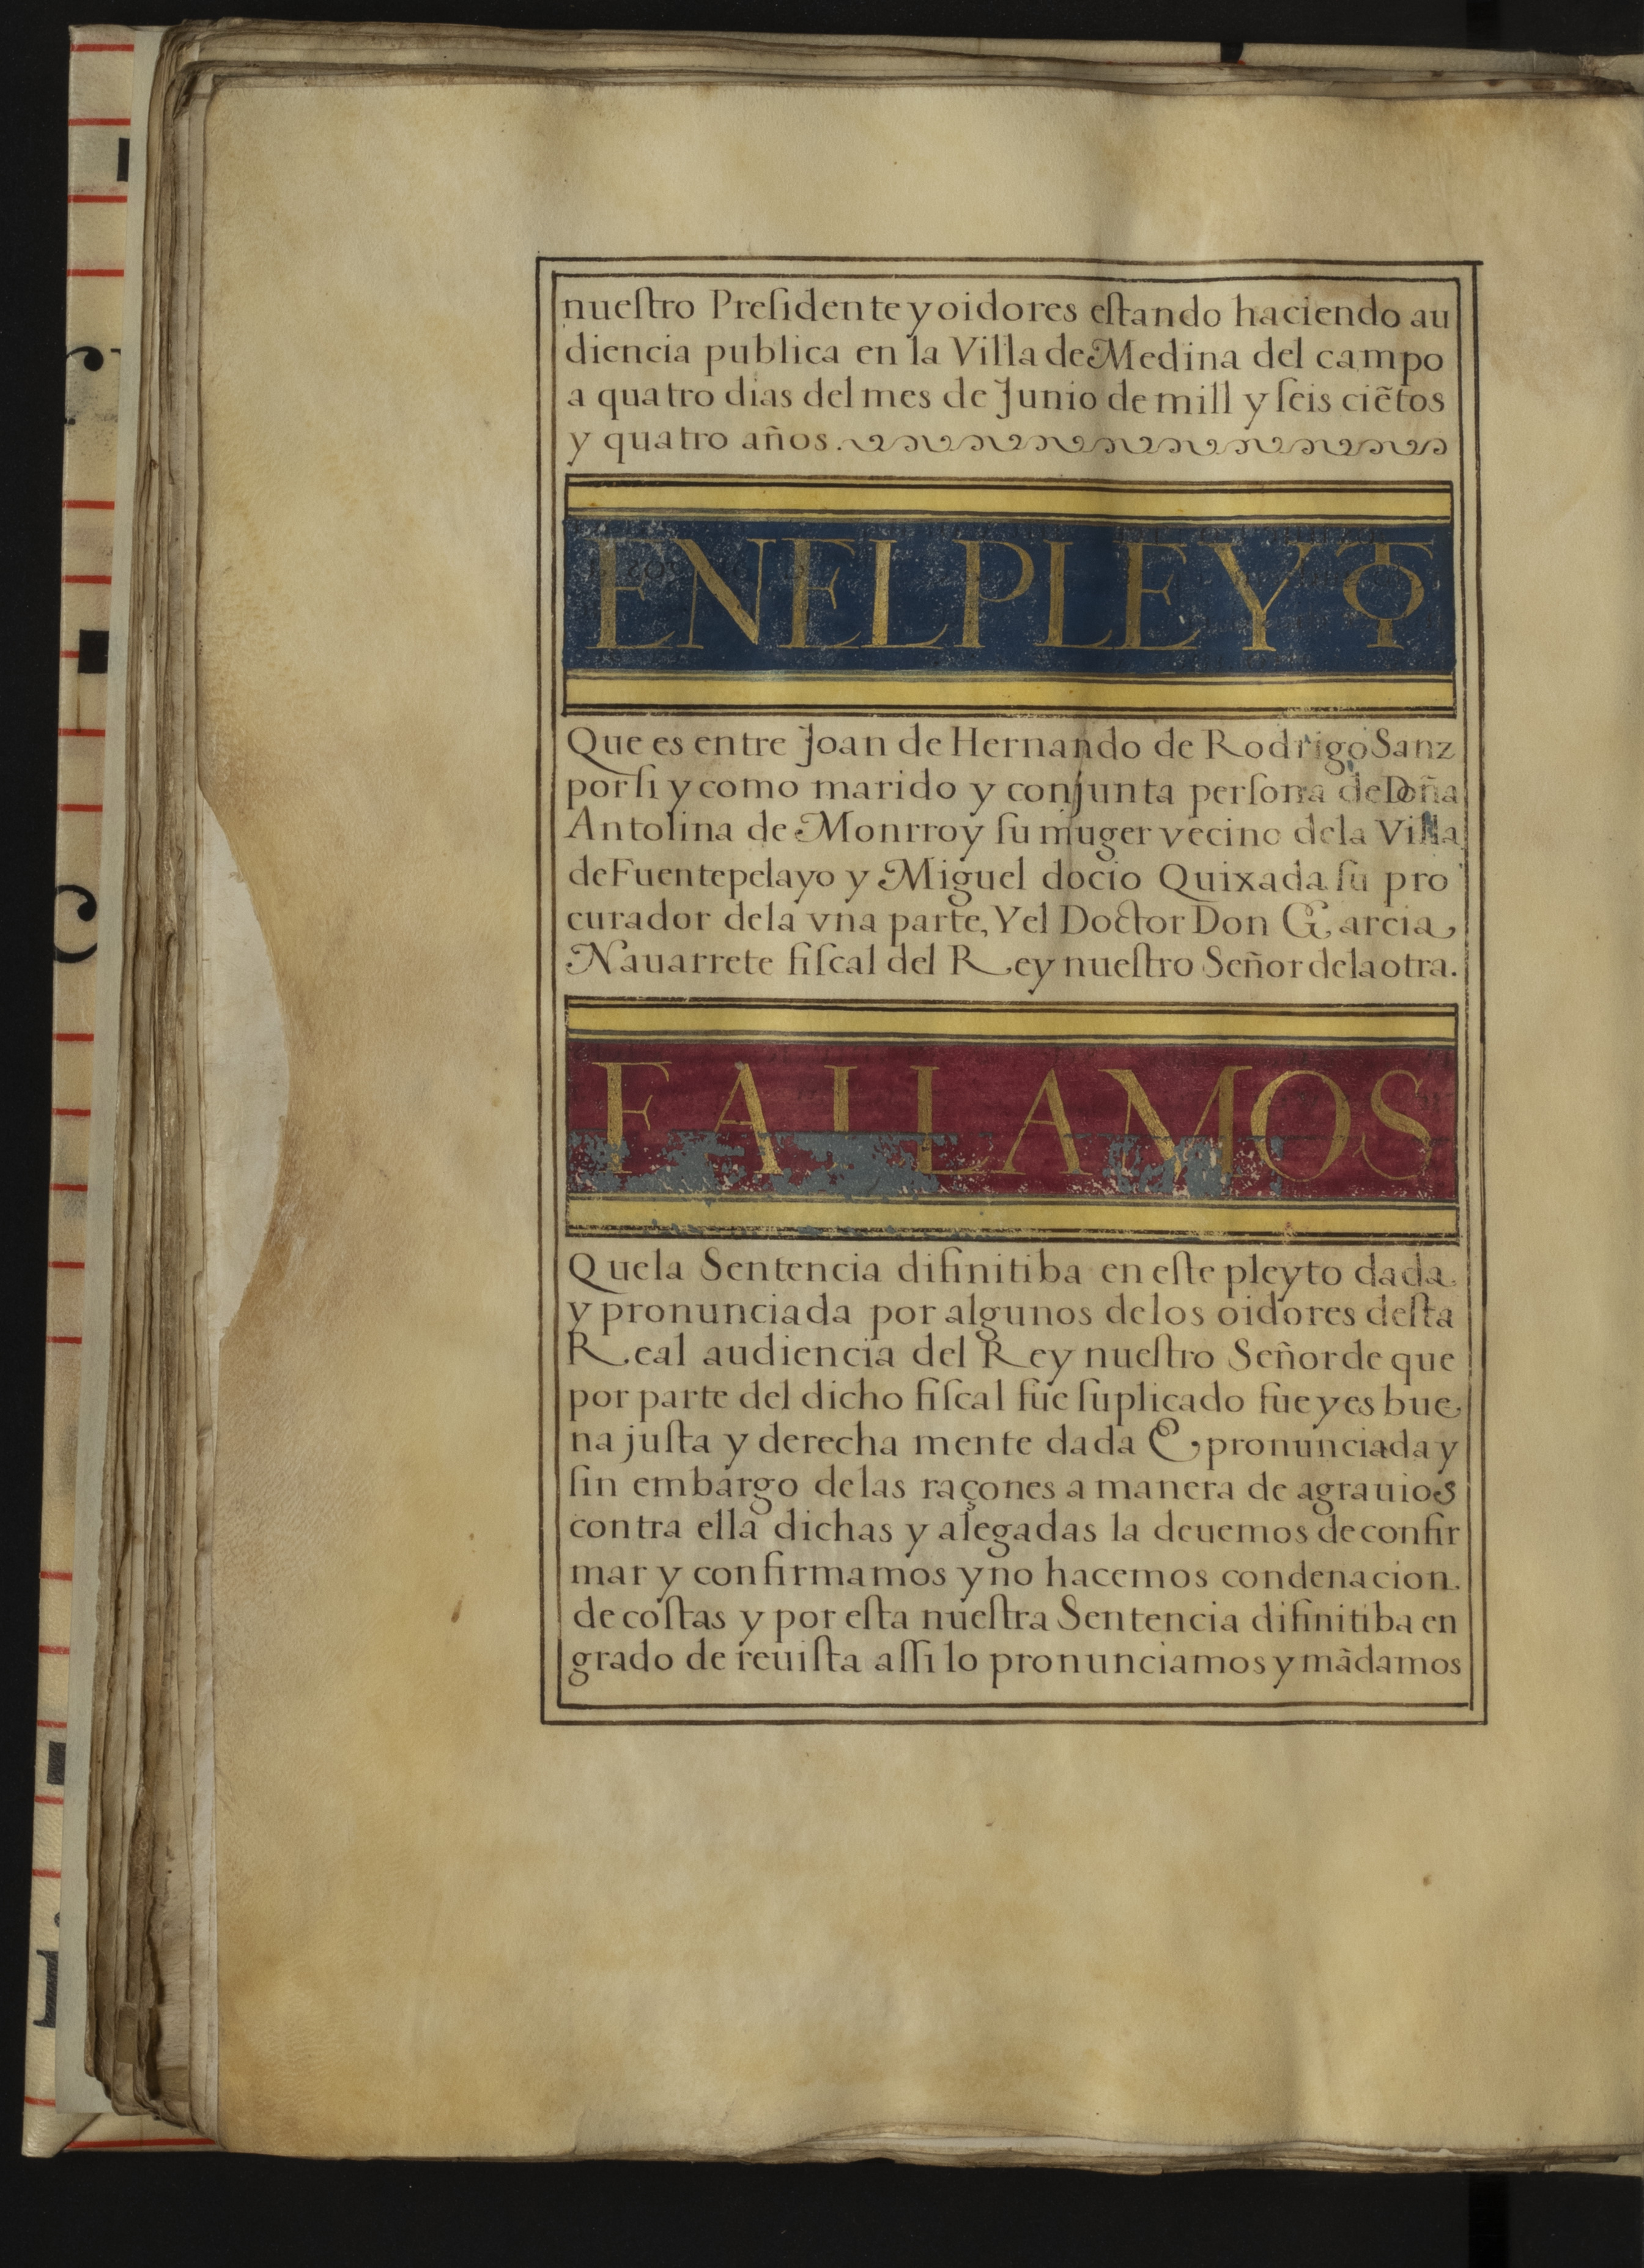 nueſtro Preſidente y oidores eſtando haciendo au
diencia publica en la Villa de Medina del campo
a quatro dias del mes de Junio de mill y ſeis ciẽtos
y quatro años.
EN EL PLEYTO
Que es entre Joan de Hernando de Rodrigo Sanz
por ſi y como marido y conjunta perſona de Doña
Antolina de Monrroy ſu muger vecino dela Villa
de Fuentepelayo y Miguel docio Quixada ſu pro
curador dela vna parte, Y el Doctor Don Garcia
Nauarrete fiſcal del Rey nueſtro Señor dela otra.
FALLAMOS
Que la Sentencia difinitiba en eſte pleyto dada
y pronunciada por algunos delos oidores deſta
Real audiencia del Rey nueſtro Señor de que
por parte del dicho fiſcal fue ſuplicado fue y es bue
na juſta y derecha mente dada & pronunciada y
ſin embargo delas raçones a manera de agrauios
contra ella dichas y alegadas la deuemos de confir
mar y confirmamos y no hacemos condenacion
de coſtas y por eſta nueſtra Sentencia difinitiba en
grado de reuiſta aſſi lo pronunciamos y mãdamos